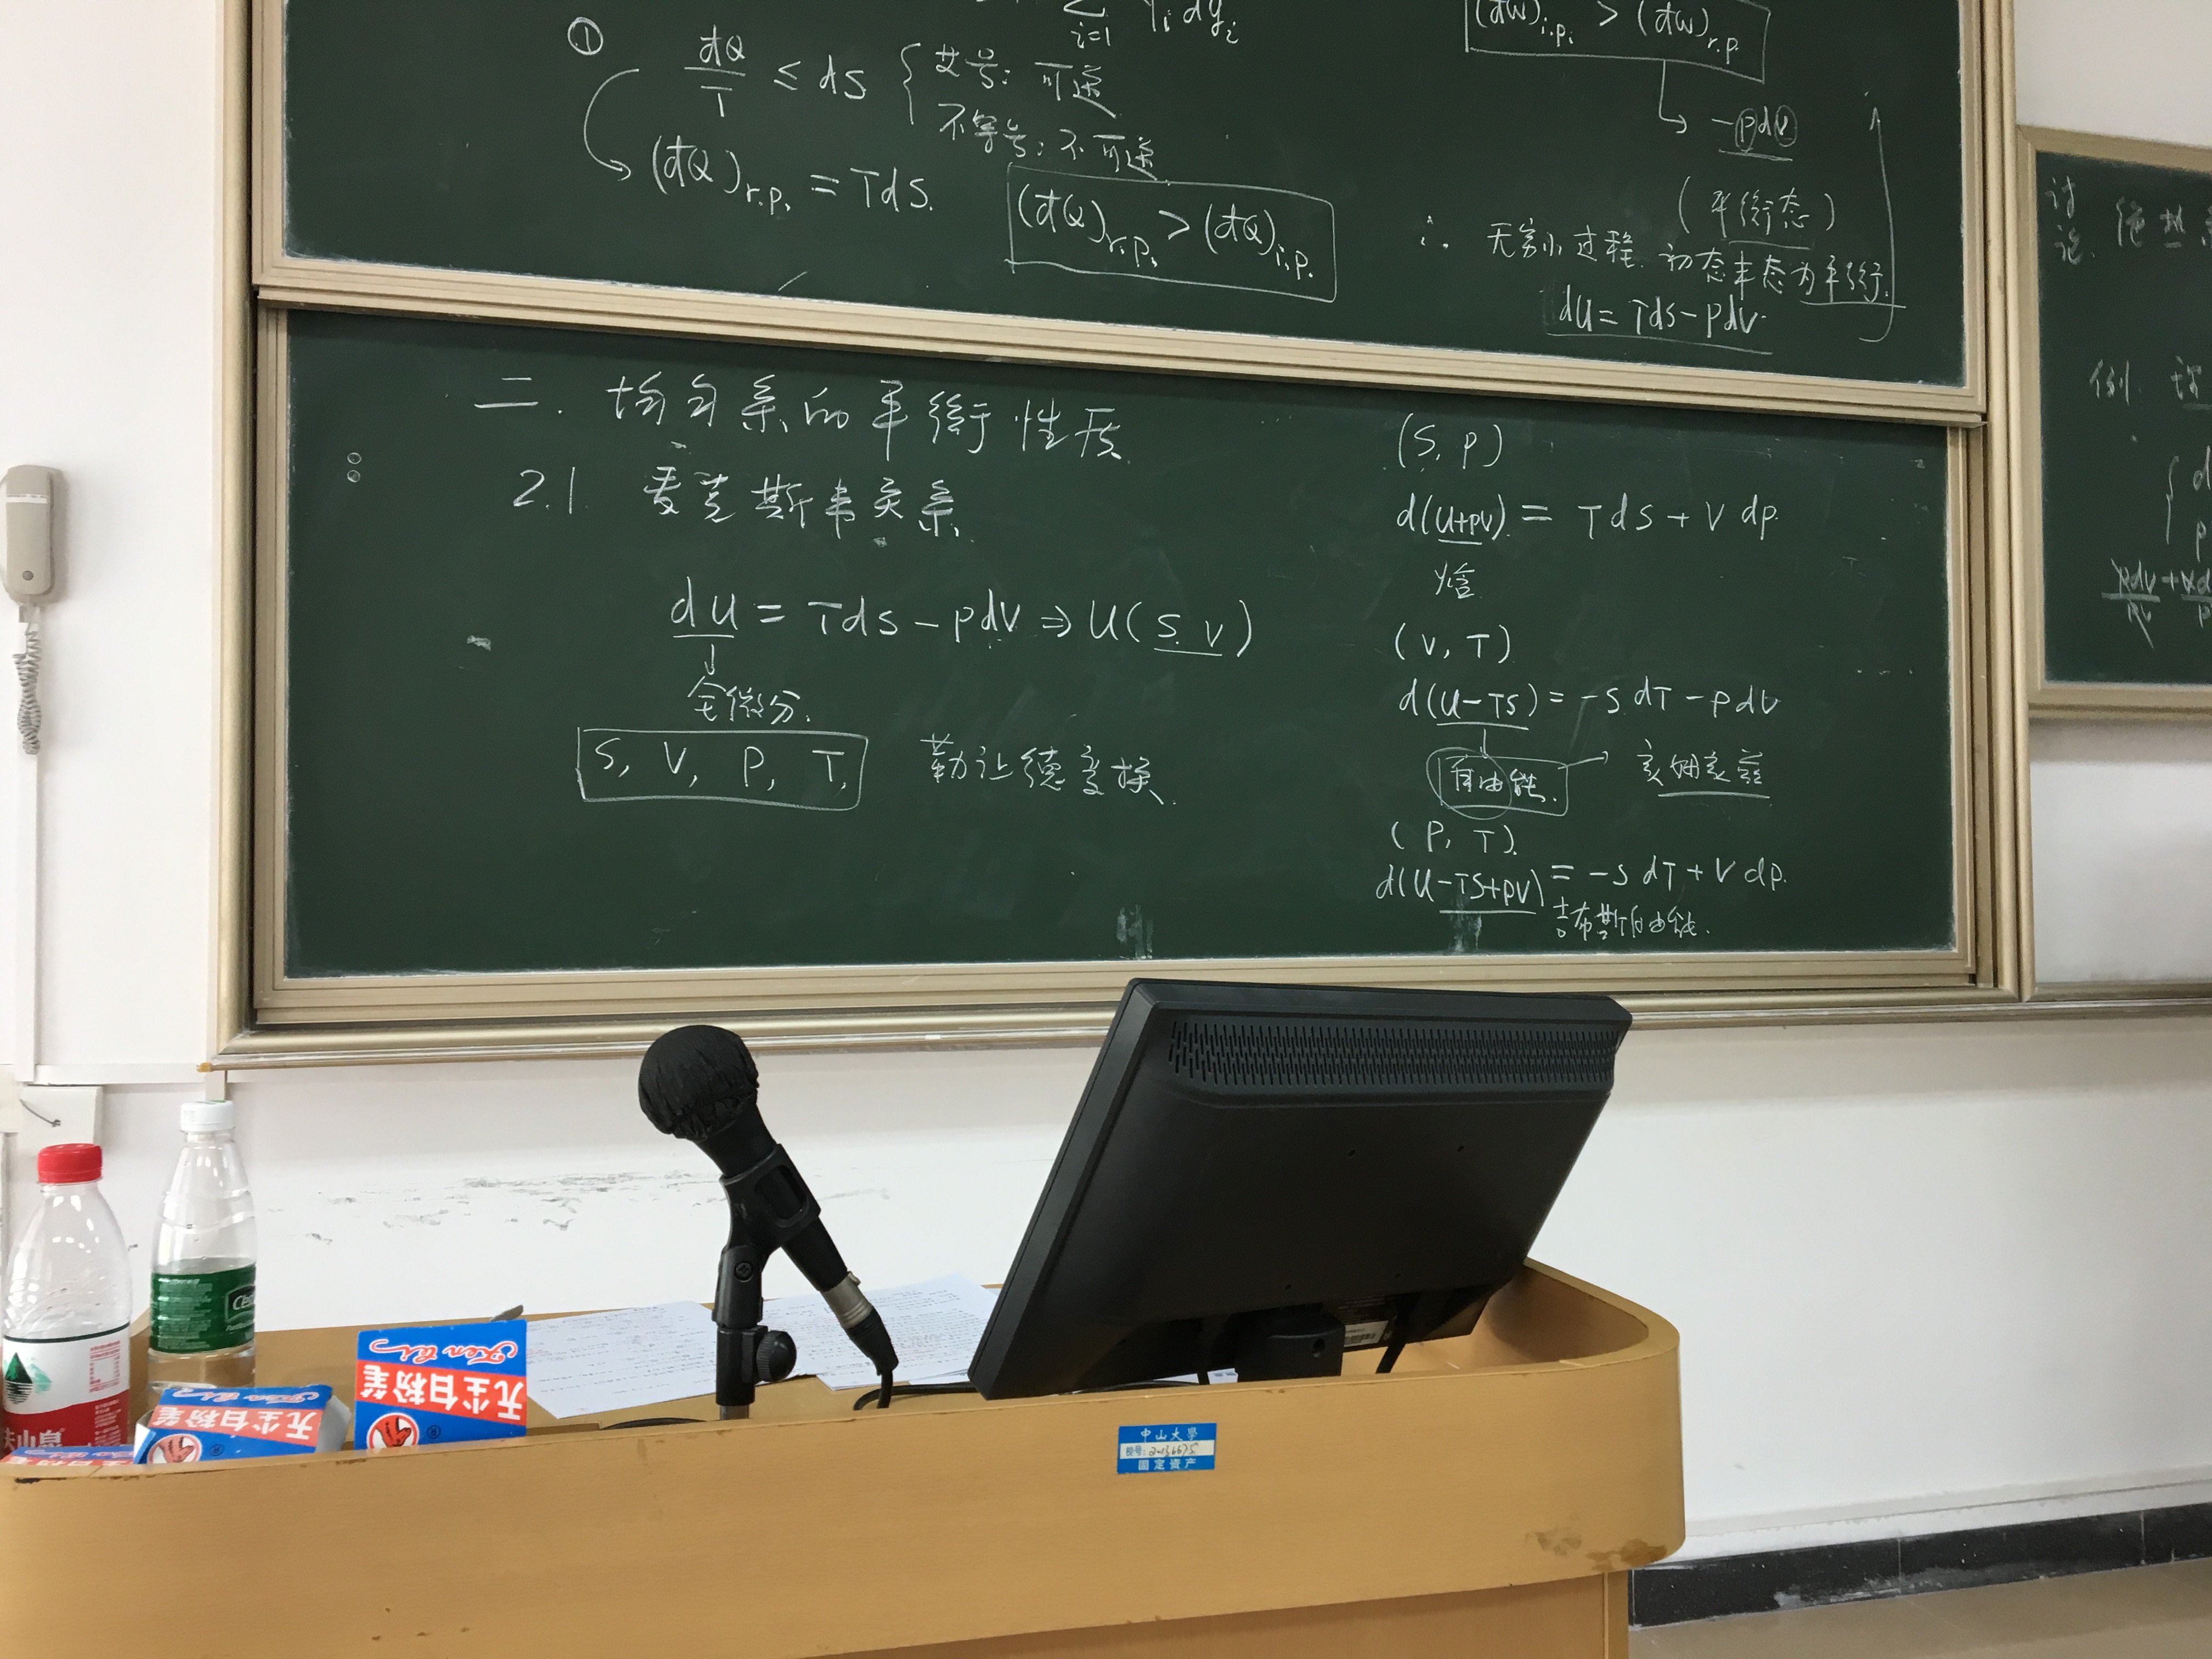 ①
đQ/T ≤ dS { 等号: 可逆
不等号: 不可逆
(đQ)r.p. = TdS.
(đQ)r.p. > (đQ)i.p.
Σ i=1 Yi dyi
(đW)i.p. > (đW)r.p.
-pdV
(平衡态)
∴ 无穷小过程. 初态末态为平衡.
dU = TdS - pdV
二. 均匀系的平衡性质
2.1 麦克斯韦关系
dU = TdS - pdV ⇒ U(S. V)
全微分.
S, V, P, T, 勒让德变换.
(S, P)
d(U+pV) = TdS + V dp.
焓
(V, T)
d(U-TS) = -S dT - p dV
自由能. → 亥姆霍兹
(P, T).
d(U-TS+pV) = -S dT + V dp.
吉布斯自由能.
讨论. 绝热
例.
无尘白粉笔
无尘白粉笔
中山大學
固定资产